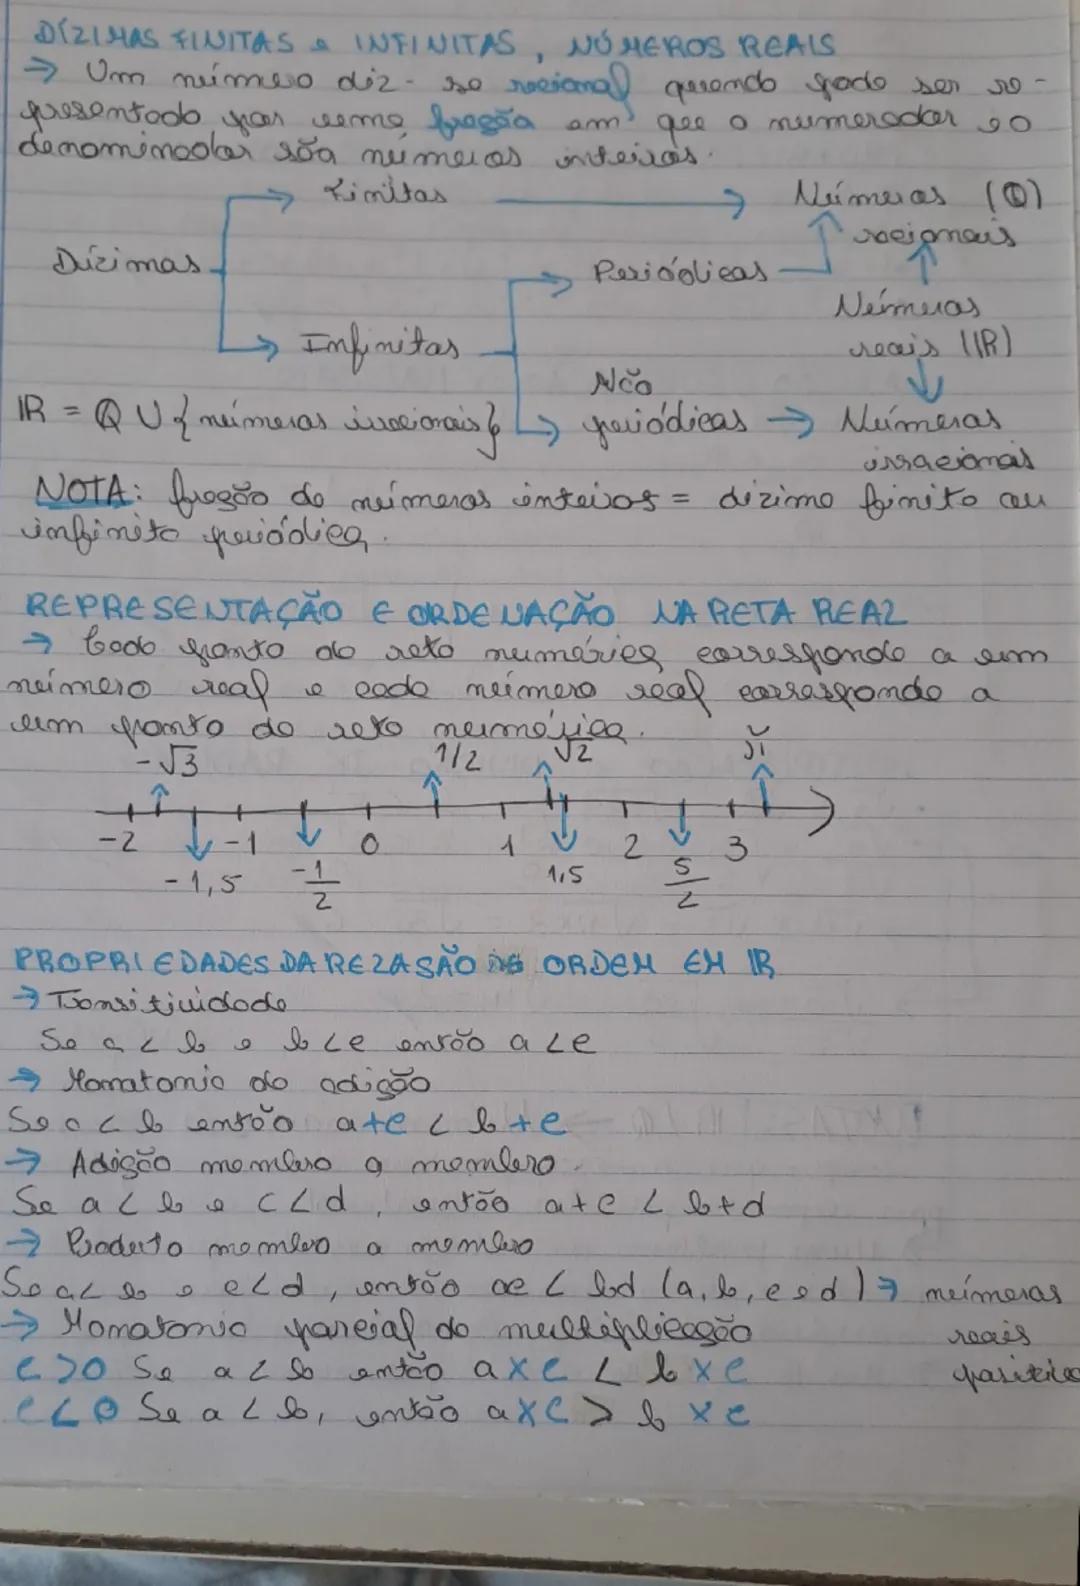 DÍZIMAS FINITAS e INFINITAS, NÚMEROS REAIS
→ Um número diz-se racional quando pode ser re-
presentado por uma fração em que o numerador e o
denominador são números inteiros.
Finitas → Números (Q)
racionais
Dízimas
Periódicas
Números
reais (IR)
Infinitas
Não
periódicas → Números
irracionais
IR = Q U {números irracionais}
NOTA: fração de números inteiros = dízima finita ou
infinita periódica.
REPRESENTAÇÃO E ORDENAÇÃO NA RETA REAL
→ Cada ponto da reta numérica corresponde a um
número real e cada número real corresponde a
um ponto da reta numérica.
-√3 1/2 √2 π
-2 -1 0 1 2 3
-1,5 -1/2 1,5 5/2
PROPRIEDADES DA RELASÃO DE ORDEM EM IR
→ Transitividade
Se a < b e b < c então a < c
→ Monotonia da adição
Se a < b então a+c < b+c
→ Adição membro a membro.
Se a < b e c < d, então a+c < b+d
→ Produto membro a membro
Se a < b e c < d, então ac < bd (a, b, c e d) → números
reais
positivos
→ Monotonia parcial da multiplicação
c>0 Se a < b então a×c < b×c
c<0 Se a < b, então a×c > b×c